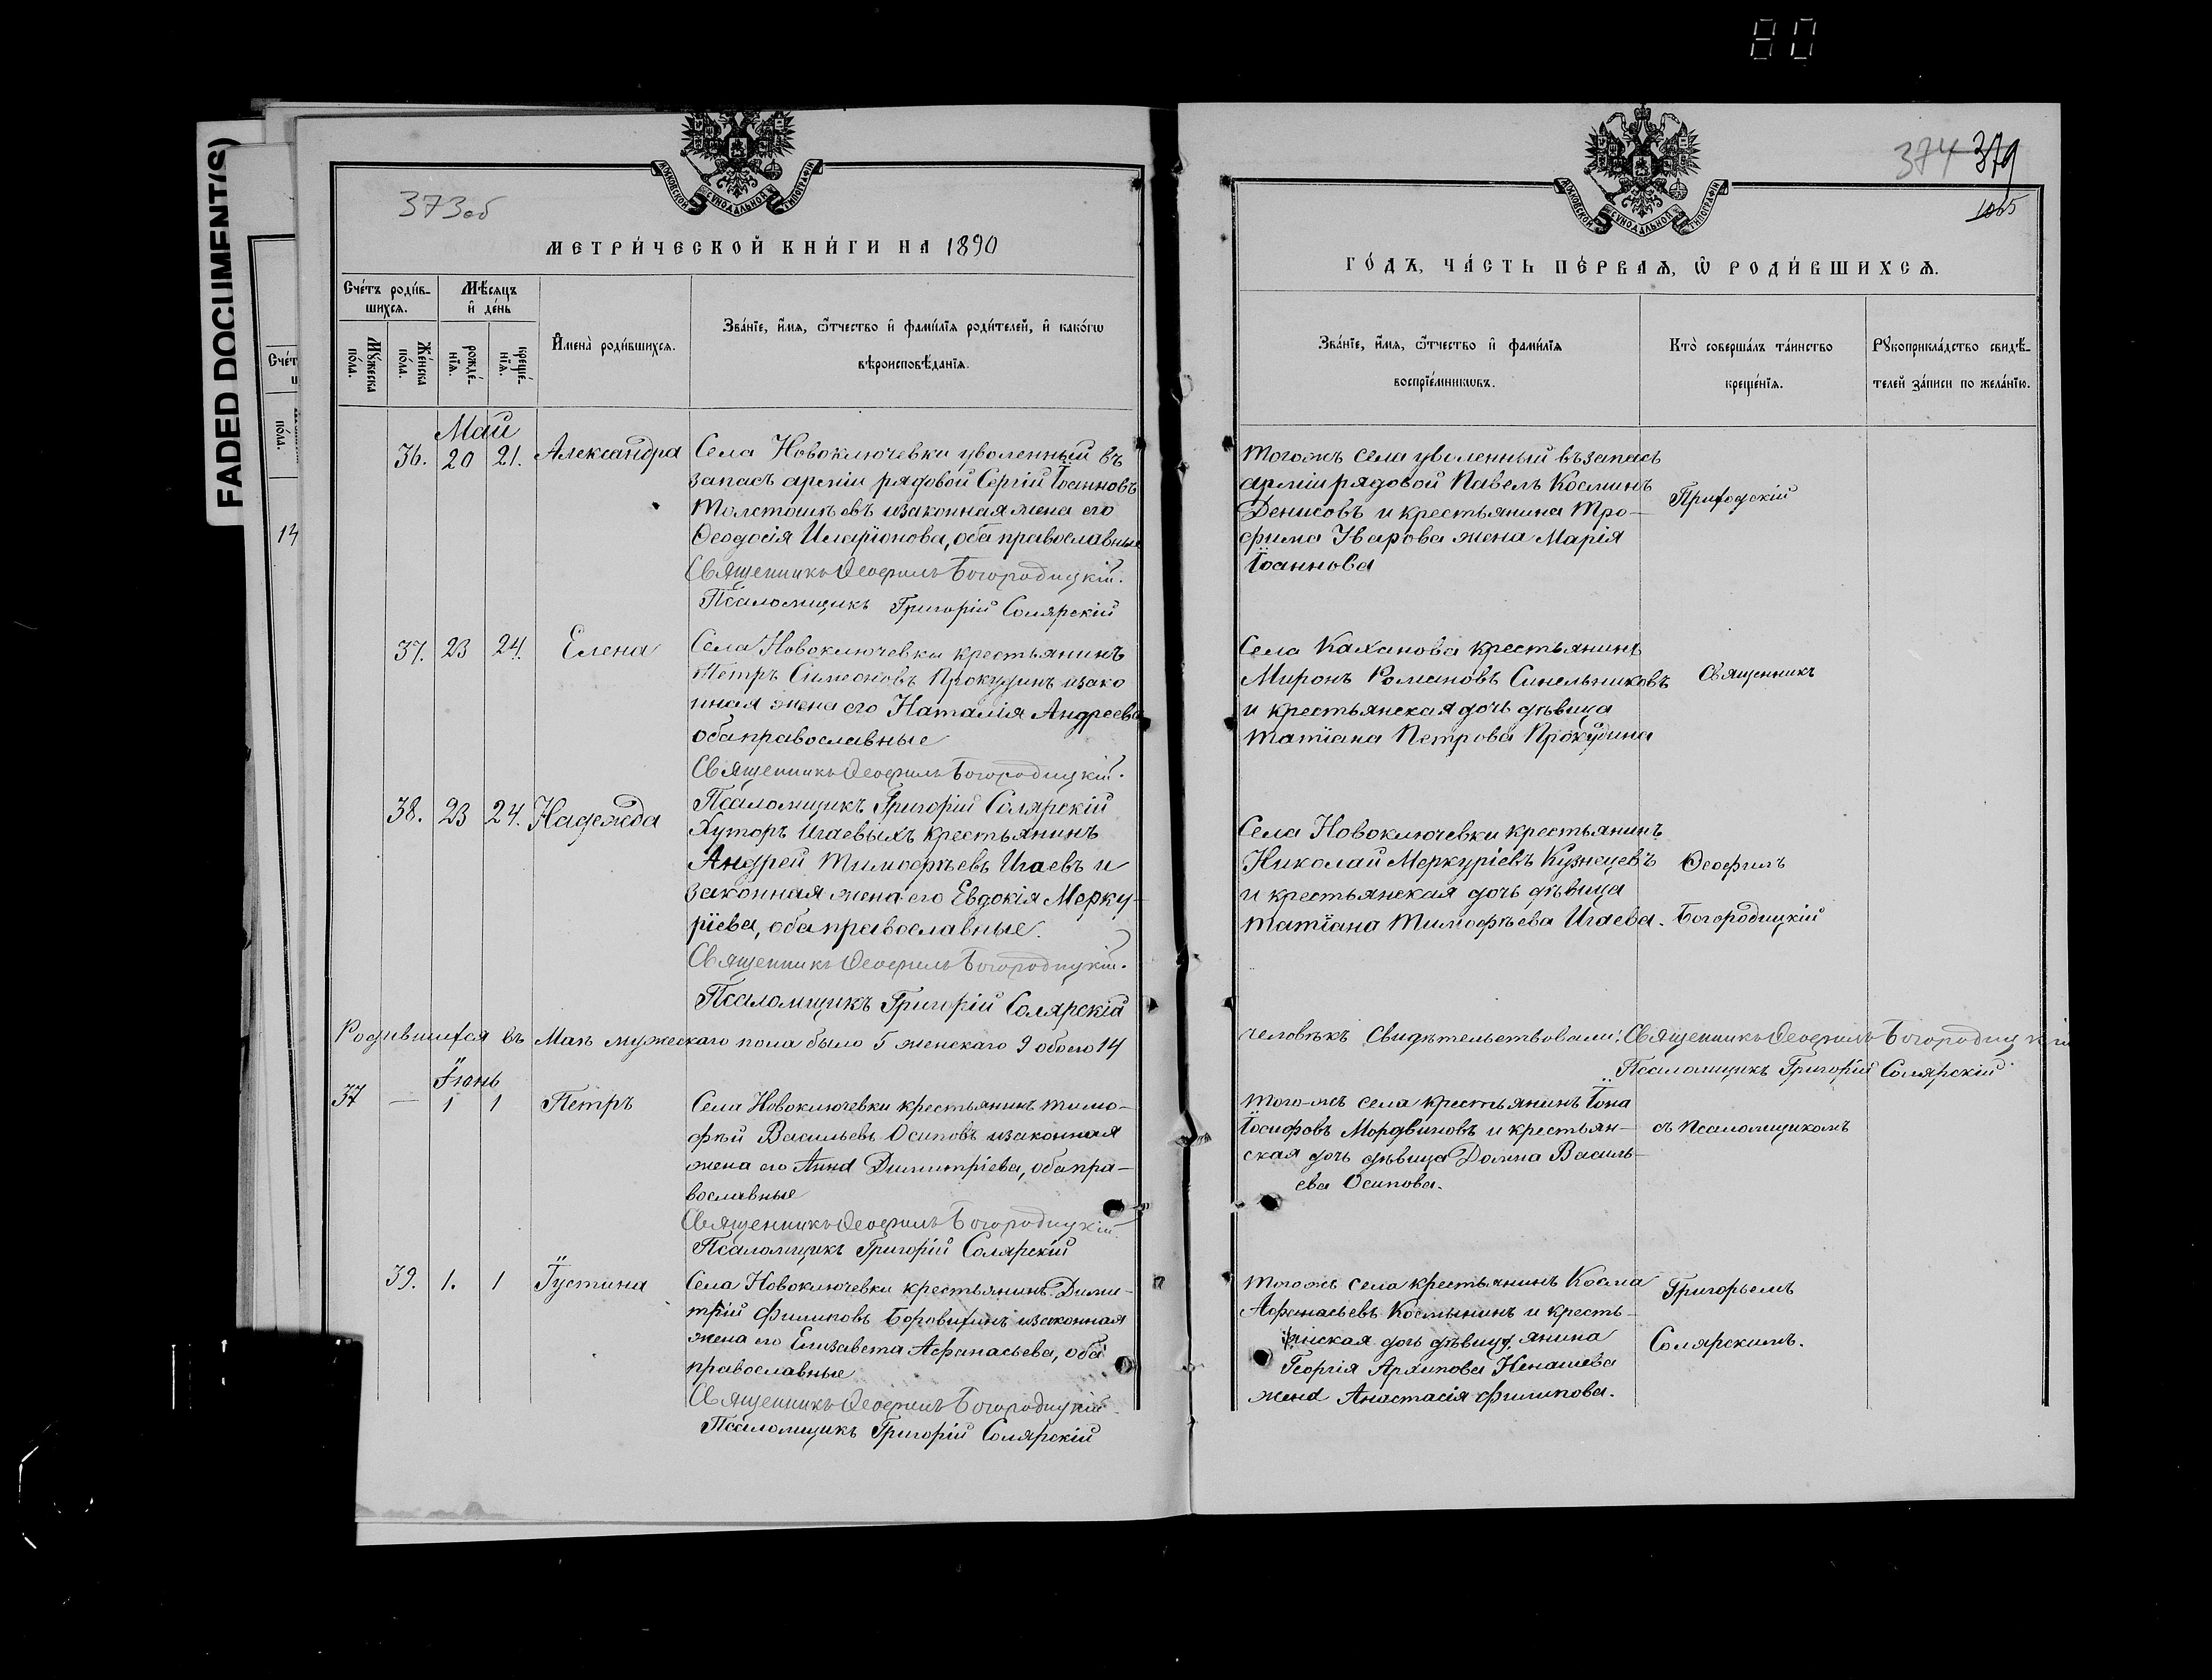 80
FADED DOCUMENT(S)
373об
МОСКОВСКОЙ СѴНОДАЛЬНОЙ ТИПОГРАФІИ
МЕТРИ́ЧЕСКОЙ КНИ́ГИ НА 1890
Сче́тъ роди́в-
шихся.
Мѣ́сяцъ
и҆ де́нь
Мꙋ́жеска
по́ла.
Же́нска
по́ла.
рожде́-
нїѧ.
креще́-
нїѧ.
И҆мена̀ роди́вшихсѧ.
Зва́нїе, и҆́мѧ, ѻ҆́тчество и҆ фами́лїѧ роди́телей, и҆ како́гѡ
вѣроисповѣ́данїѧ.
Май
36. 20 21. Александра
Села Новоключевки уволенный въ
запасъ арміи рядовой Сергій Іоанновъ
Толстошеевъ изаконная жена его
Ѳеодосія Иларіонова, оба православные
Священникъ Ѳеофилъ Богородицкій.
Псаломщикъ Григорій Солярскій
37. 23 24. Елена
Села Новоключевки крестьянинъ
Петръ Симеоновъ Прокудинъ изако
нная жена его Наталія Андреева
оба православные
Священникъ Ѳеофилъ Богородицкій.
Псаломщикъ Григорій Солярскій
38. 23 24. Надежда
Хуторъ Игаевыхъ крестьянинъ
Андрей Тимофѣевъ Игаевъ и
законная жена его Евдокія Мерку-
ріева, оба православные.
Священникъ Ѳеофилъ Богородицкій.
Псаломщикъ Григорій Солярскій
Родившихся въ Маѣ мужескаго пола было 5 женскаго 9 обоего 14
Іюнь
37 — 1 1 Петръ
Села Новоключевки крестьянинъ Тимо-
фѣй Васильевъ Осиповъ изаконная
жена его Анна Димитріева, оба пра-
вославные
Священникъ Ѳеофилъ Богородицкій.
Псаломщикъ Григорій Солярскій
39. 1. 1 Іустина
Села Новоключевки крестьянинъ Дими-
трій Филиповъ Боровихинъ изаконная
жена его Елизавета Афанасьева, оба
православные
Священникъ Ѳеофилъ Богородицкій.
Псаломщикъ Григорій Солярскій
374 379
1065
МОСКОВСКОЙ СѴНОДАЛЬНОЙ ТИПОГРАФІИ
ГО́ДЪ, ЧА́СТЬ ПЕ́РВАѦ, Ѡ҆ РОДИ́ВШИХСѦ.
Зва́нїе, и҆́мѧ, ѻ҆́тчество и҆ фами́лїѧ
воспрїе́мникѡвъ.
Кто̀ соверша́лъ та́инство
креще́нїѧ.
Рꙋкоприкла́дство свидѣ́-
телей за́писи по жела́нїю.
Тогожъ села уволенный въ запасъ
арміи рядовой Павелъ Косминъ
Денисовъ и крестьянина Тро-
фима Уварова жена Марія
Іоаннова
Приходскій
Села Каханова крестьянинъ
Миронъ Романовъ Синельниковъ
и крестьянская дочь дѣвица
Татіана Петрова Прокудина
Священникъ
Села Новоключевки крестьянинъ
Николай Меркуріевъ Кузнецовъ
и крестьянская дочь дѣвица
Татіана Тимофѣева Игаева.
Ѳеофилъ
Богородицкій
человѣкъ Свидѣтельствовали: Священникъ Ѳеофилъ Богородицкій
Псаломщикъ Григорій Солярскій
Того-жъ села крестьянинъ Іона
Іосифовъ Мордвиновъ и крестьян-
ская дочь дѣвица Домна Василь-
ева Осипова.
съ псаломщикомъ
Тогожъ села крестьянинъ Косма
Афанасьевъ Костынинъ и кресть-
янская дочь дѣвица янина
Георгія Архипова Ненашева
жена Анастасія Филипова.
Григорьемъ
Солярскимъ.
Сче́т
по́ла.
14